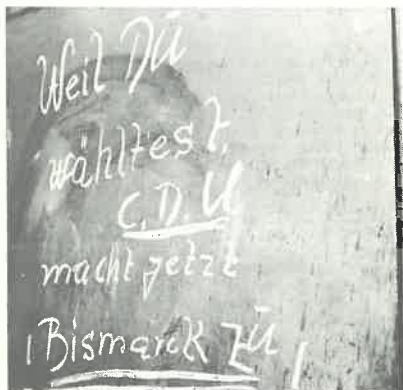 Weil Dū
wähltest,
C.D.U
macht jetzt
! Bismarck zū !